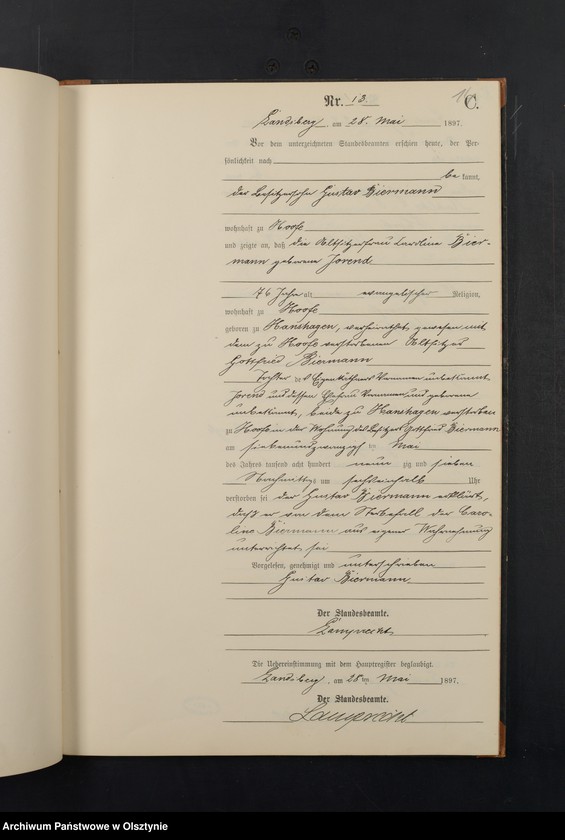 Nr. 13.
C.
Landsberg, am 28. Mai 1897.
Vor dem unterzeichneten Standesbeamten erschien heute, der Per-
sönlichkeit nach
be kannt,
der Besitzersohn Gustav Biermann
wohnhaft zu Hoofe
und zeigte an, daß die Altsitzerfrau Caroline Bier-
mann geborene Jorend
76 Jahre alt evangelischer Religion,
wohnhaft zu Hoofe
geboren zu Hanshagen, verheirathet gewesen mit
dem zu Hoofe verstorbenen Altsitzer
Gottfried Biermann
Tochter des Eigenkäthners Vornamen unbekannt
Jorend und dessen Ehefrau Vornamen und geborene
unbekannt, beide zu Hanshagen verstorben
zu Hoofe in der Wohnung des Besitzers Gottfried Biermann
am siebenundzwanzigsten Mai
des Jahres tausend acht hundert neun zig und sieben
Nachmittags um sechseinhalb Uhr
verstorben sei der Gustav Biermann erklärt,
daß er von dem Sterbefall der Caro-
line Biermann aus eigener Wahrnehmung
unterrichtet sei
Vorgelesen, genehmigt und unterschrieben
Gustav Biermann
Der Standesbeamte.
Lamprecht
Die Uebereinstimmung mit dem Hauptregister beglaubigt.
Landsberg, am 28ten Mai 1897.
Der Standesbeamte.
Lamprecht
Archiwum Państwowe w Olsztynie